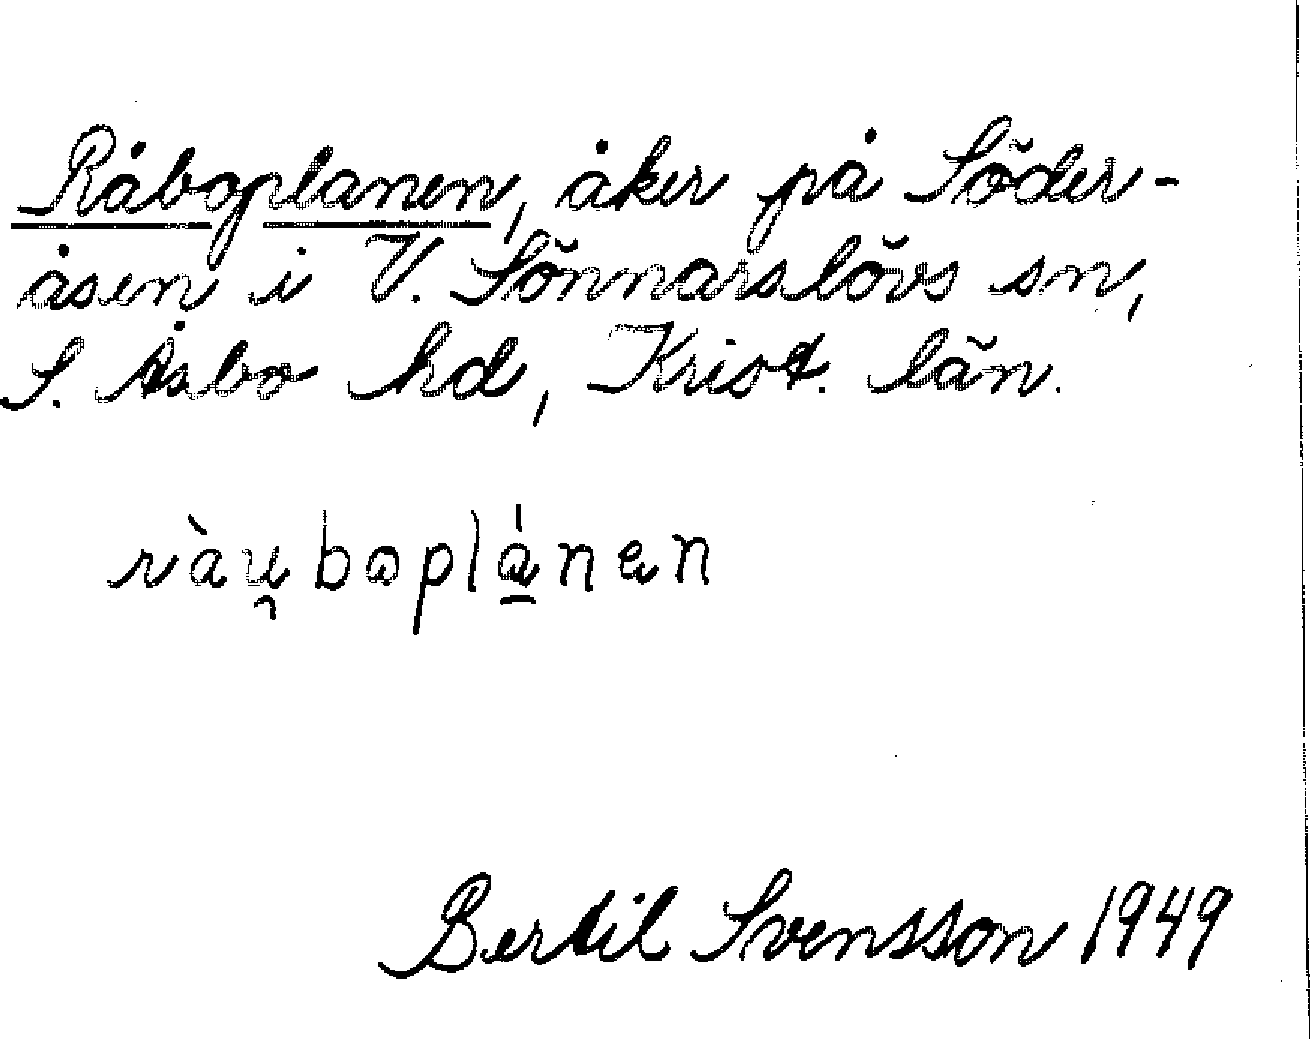 Råboplanen, åker på Söder-
åsen i V. Sönnarslövs sn,
S. Åsbo hd, Krist. län.
ràu̯boplá̱nen
Bertil Svensson 1949